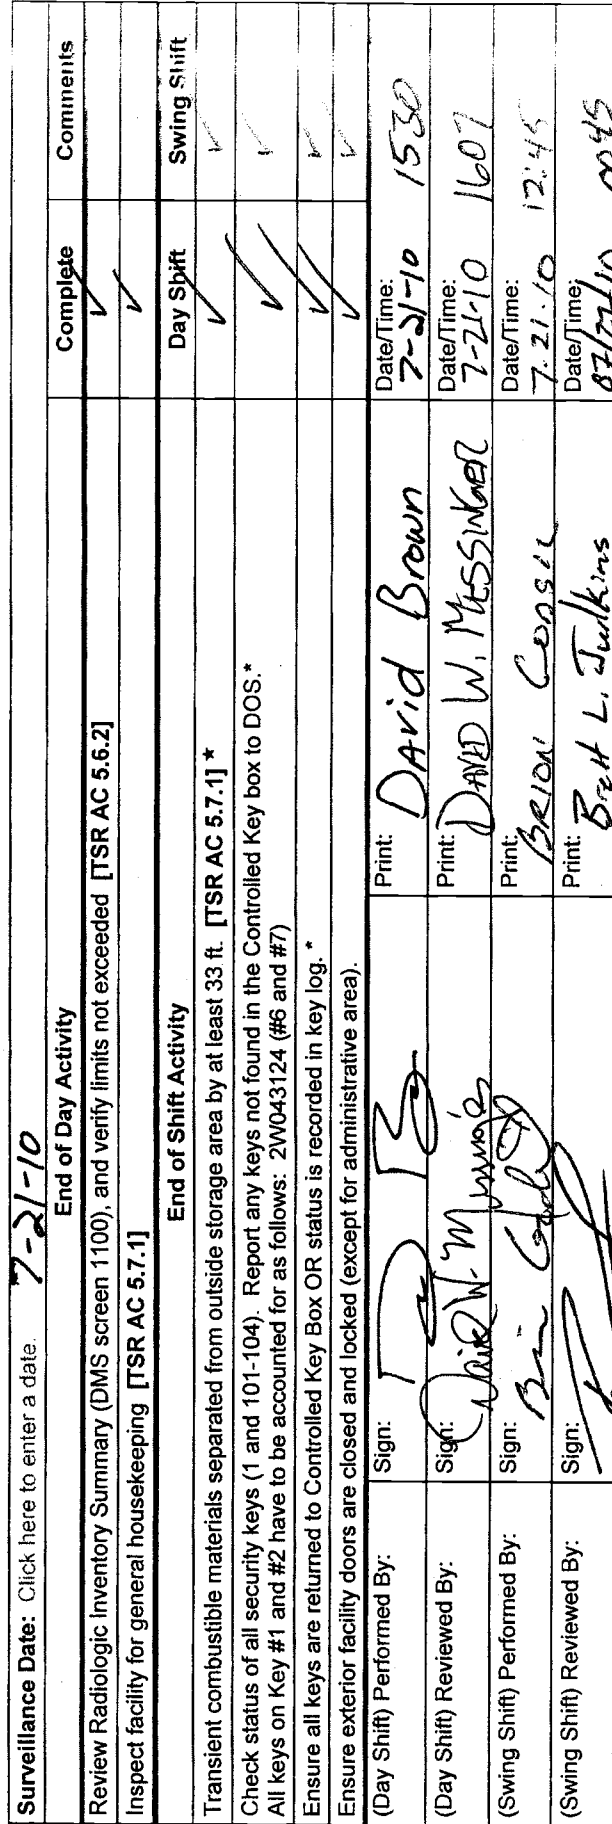 Surveillance Date: Click here to enter a date. 7-21-10
End of Day Activity Complete Comments
Review Radiologic Inventory Summary (DMS screen 1100), and verify limits not exceeded [TSR AC 5.6.2] ✓
Inspect facility for general housekeeping [TSR AC 5.7.1] ✓
End of Shift Activity Day Shift Swing Shift
Transient combustible materials separated from outside storage area by at least 33 ft. [TSR AC 5.7.1] * ✓ ✓
Check status of all security keys (1 and 101-104). Report any keys not found in the Controlled Key box to DOS.* ✓ ✓
All keys on Key #1 and #2 have to be accounted for as follows: 2W043124 (#6 and #7)
Ensure all keys are returned to Controlled Key Box OR status is recorded in key log. * ✓ ✓
Ensure exterior facility doors are closed and locked (except for administrative area). ✓ ✓
(Day Shift) Performed By: Sign: Print: David Brown Date/Time: 7-21-10 1530
(Day Shift) Reviewed By: Sign: David W. Print: DAVID W. MESSINGER Date/Time: 7-21-10 1607
(Swing Shift) Performed By: Sign: Print: BRION Date/Time: 7.21.10 12:45
(Swing Shift) Reviewed By: Sign: Print: Brett L. Judkins Date/Time: 07/22/10 0045